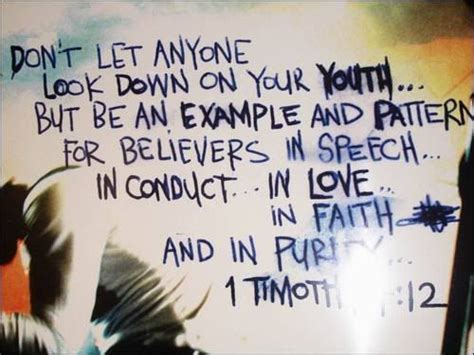 DON'T LET ANYONE
LOOK DOWN ON YOUR YOUTH...
BUT BE AN EXAMPLE AND PATTERN
FOR BELIEVERS IN SPEECH...
IN CONDUCT... IN LOVE...
IN FAITH
AND IN PURITY...
1 TIMOTH :12